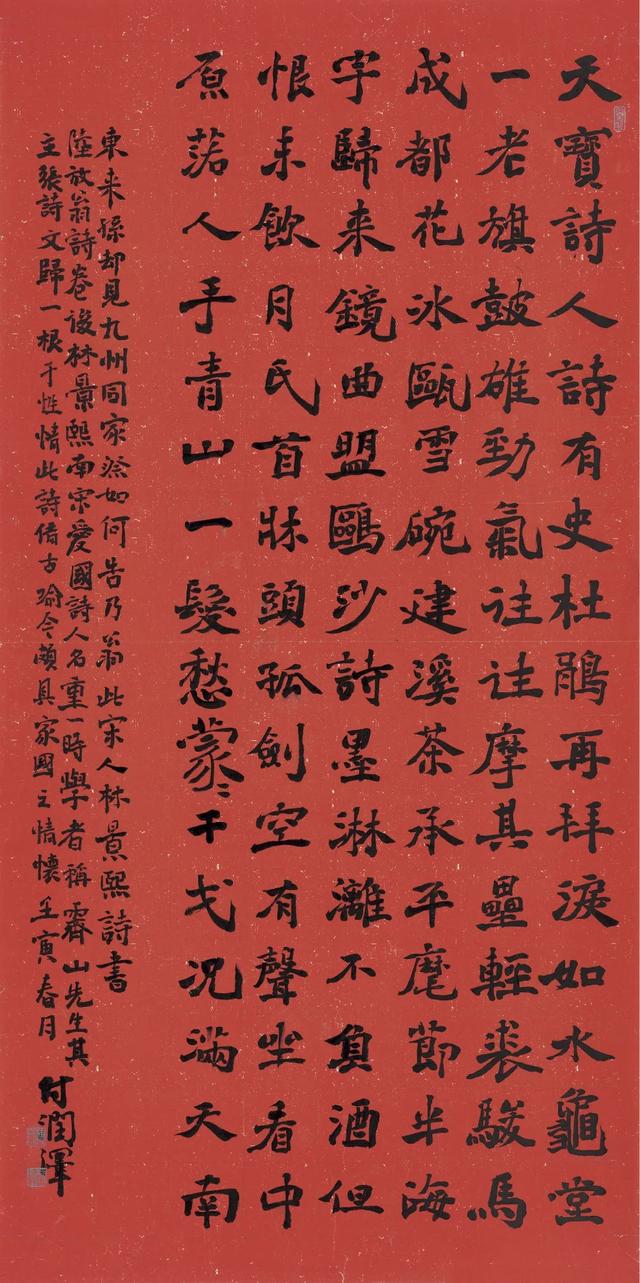 天寶詩人詩有史杜鵑再拜淚如水龜堂
一老旗鼓雄勁氣往往摩其壘輕裘駿馬
成都花冰甌雪碗建溪茶承平麾節半海
宇歸来鏡曲盟鷗沙詩墨淋漓不負酒但
恨未飲月氏首牀頭孤劍空有聲坐看中
原落人手青山一髮愁蒙〻干戈況滿天南
東来孫却見九州同家祭如何告乃翁此宋人林景熙詩書
陸放翁詩卷後林景熙南宋愛國詩人名重一時學者稱霽山先生其
主張詩文歸一根于性情此詩借古喻今頗具家國之情懷壬寅春月
付潤澤